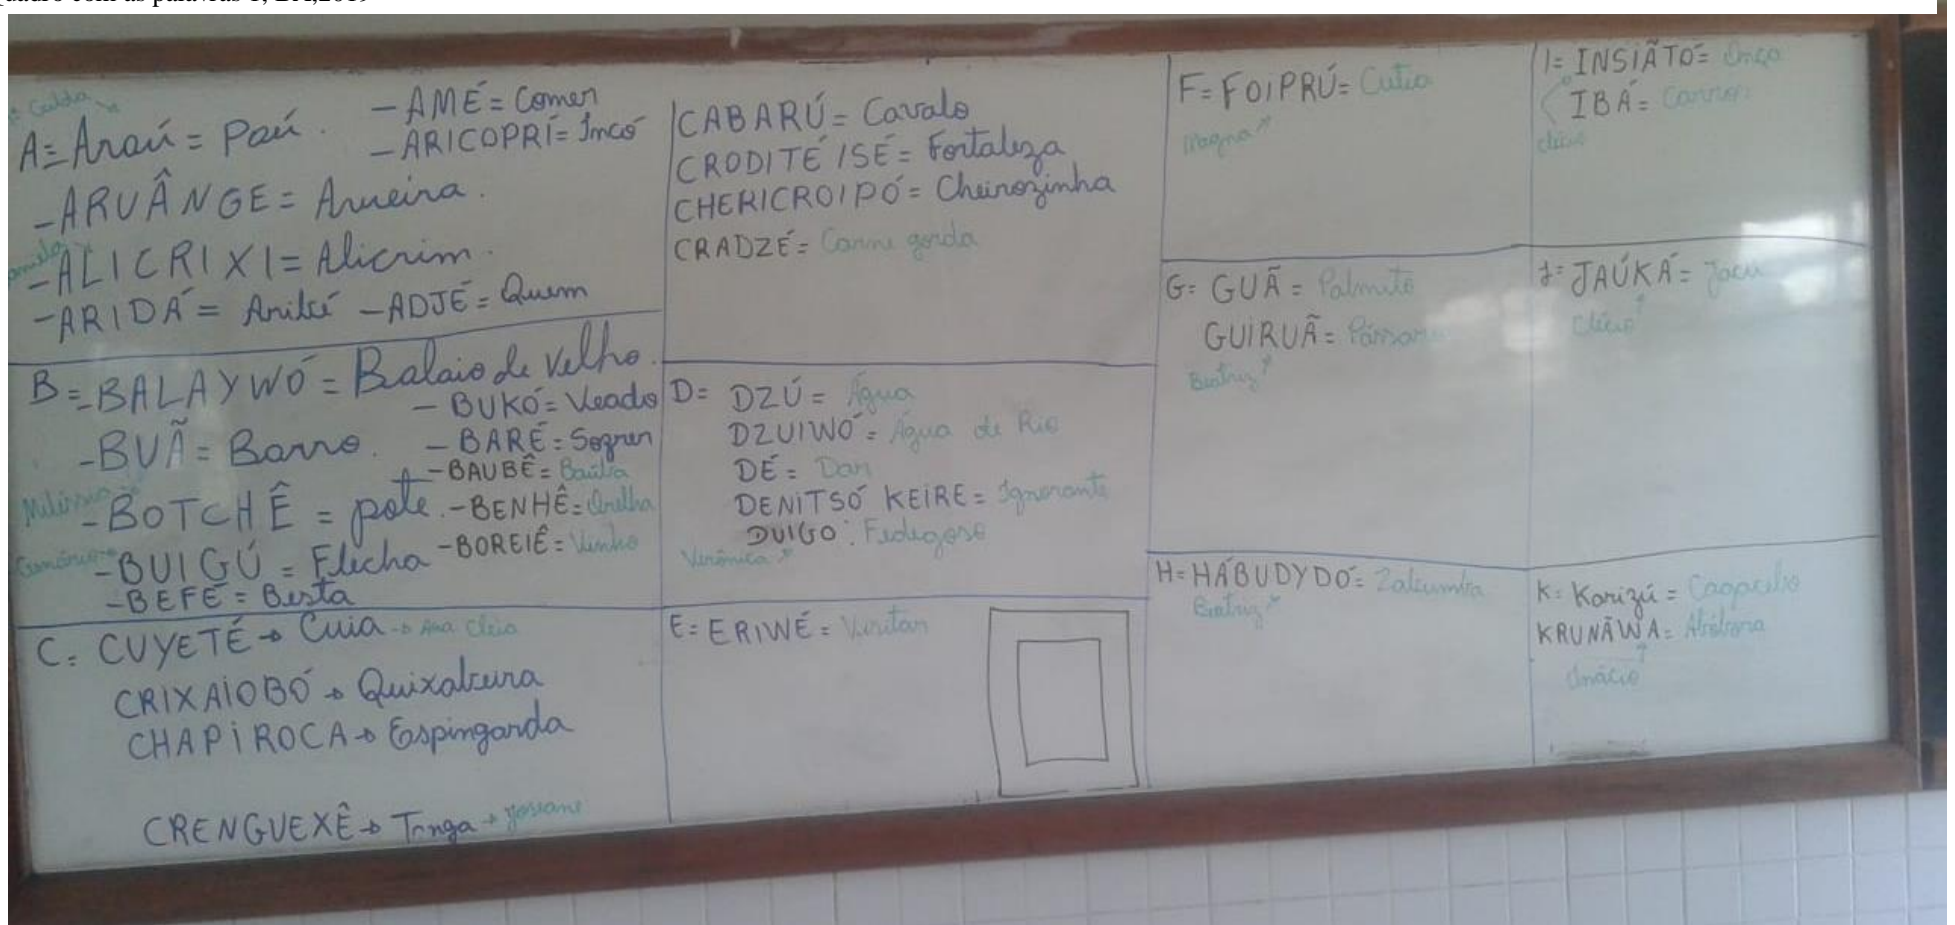 quadro com as palavras 1, BA,2019
A= Araú = Paú.
- AMÉ = Comer
- ARICOPRÍ = Incó
- ARUÂNGE = Arueira.
- ALICRIXI = Alicrim.
- ARIDÁ = Ariticú - ADJÉ = Quem
B= - BALAYWÓ = Balaio de Velho.
- BUKÓ = Veado
- BUÃ = Barro. - BARÉ = Sofrer
- BAUBÊ =
- BOTCHÊ = pote. - BENHÊ = Orelha
- BUIGÚ = Flecha - BOREIÊ = Vinho
- BEFÉ = Besta
C= CUYETÉ → Cuia → Ana Cleia
CRIXAIOBÓ → Quixabeira
CHAPIROCA → Espingarda
CRENGUEXÊ → Tanga → Josiane
CABARÚ = Cavalo
CRODITÉ ISÉ = Fortaleza
CHERICROIPÓ = Cheirozinha
CRADZÉ = Carne gorda
D= DZÚ = Água
DZUIWÓ = Água de Rio
DÉ = Dar
DENITSÓ KEIRE = Ignorante
DUIGO: Fedegoso
Verônica
E= ERIWÉ =
F= FOIPRÚ = Cutia
Magna
G= GUÃ = Palmito
GUIRUÃ = Pássaro
Beatriz
H= HÁBUDYDÓ = Zabumba
Beatriz
I= INSIÃTÓ = Onça
IBÁ = Carro
Clécio
J= JAÚKÁ = Jacu
Clécio
K= Karizú =
KRUNÃWA = Abóbora
Inácio